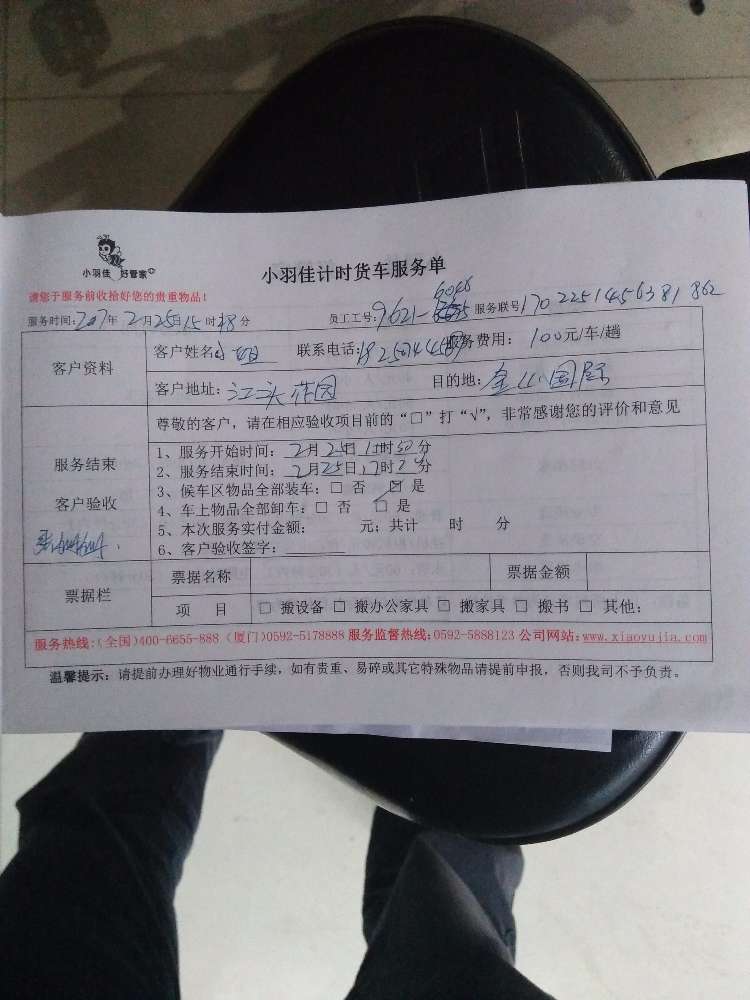 小羽佳 好管家
小羽佳计时货车服务单
请您于服务前收拾好您的贵重物品！
服务时间：2017年2月25日15时48分 员工工号：9621- 6046 服务联号1702251456381862
客户资料 客户姓名 小姐 联系电话： 服务费用：100元/车/趟
客户地址：江头花园 目的地：金山国际
尊敬的客户，请在相应验收项目前的“□”打“√”，非常感谢您的评价和意见
服务结束
客户验收
1、服务开始时间：2月25日15时50分
2、服务结束时间：2月25日17时2分
3、候车区物品全部装车：□ 否 ☑ 是
4、车上物品全部卸车：□ 否 □ 是
5、本次服务实付金额： 元；共计 时 分
6、客户验收签字：
票据栏 票据名称 票据金额
项 目 □ 搬设备 □ 搬办公家具 □ 搬家具 □ 搬书 □ 其他：
服务热线：（全国）400-6655-888（厦门）0592-5178888 服务监督热线：0592-5888123 公司网站：www.xiaoyujia.com
温馨提示：请提前办理好物业通行手续，如有贵重、易碎或其它特殊物品请提前申报，否则我司不予负责。